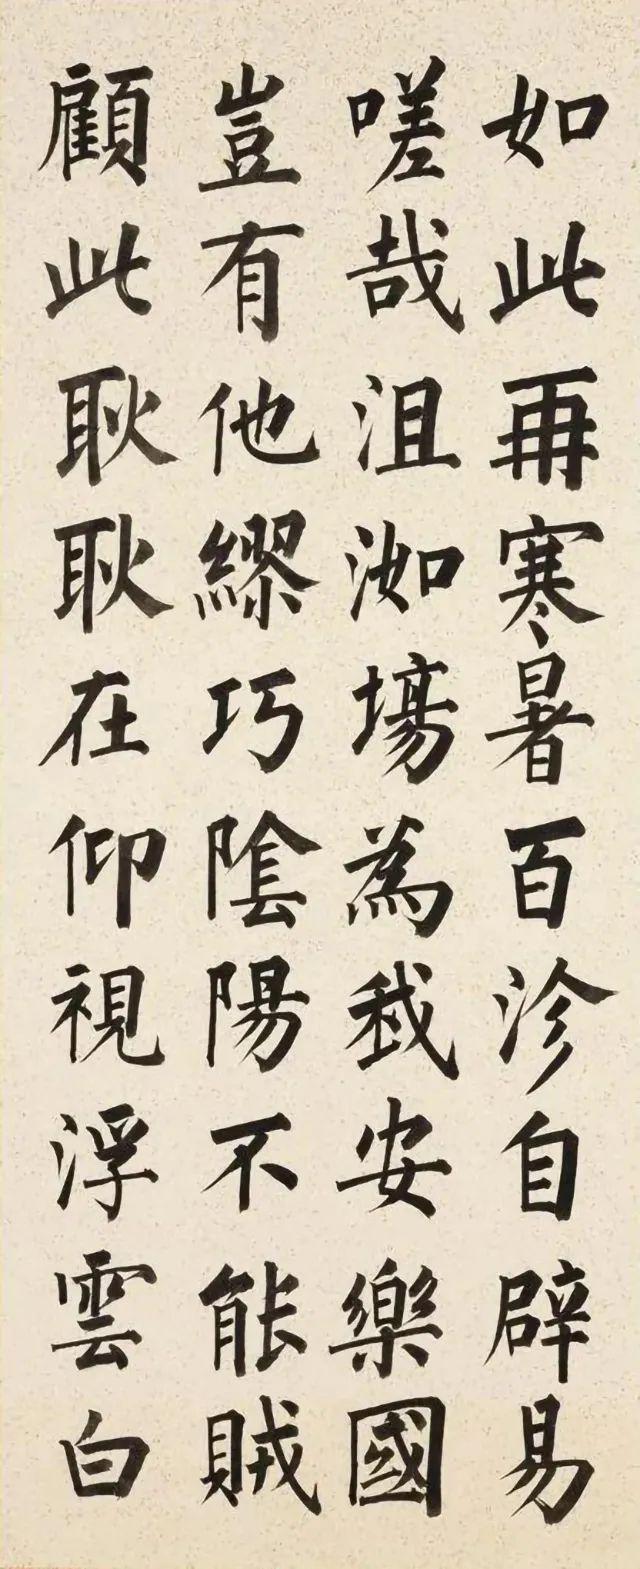 如此再寒暑百沴自辟易
嗟哉沮洳場為我安樂國
豈有他繆巧陰陽不能賊
顧此耿耿在仰視浮雲白